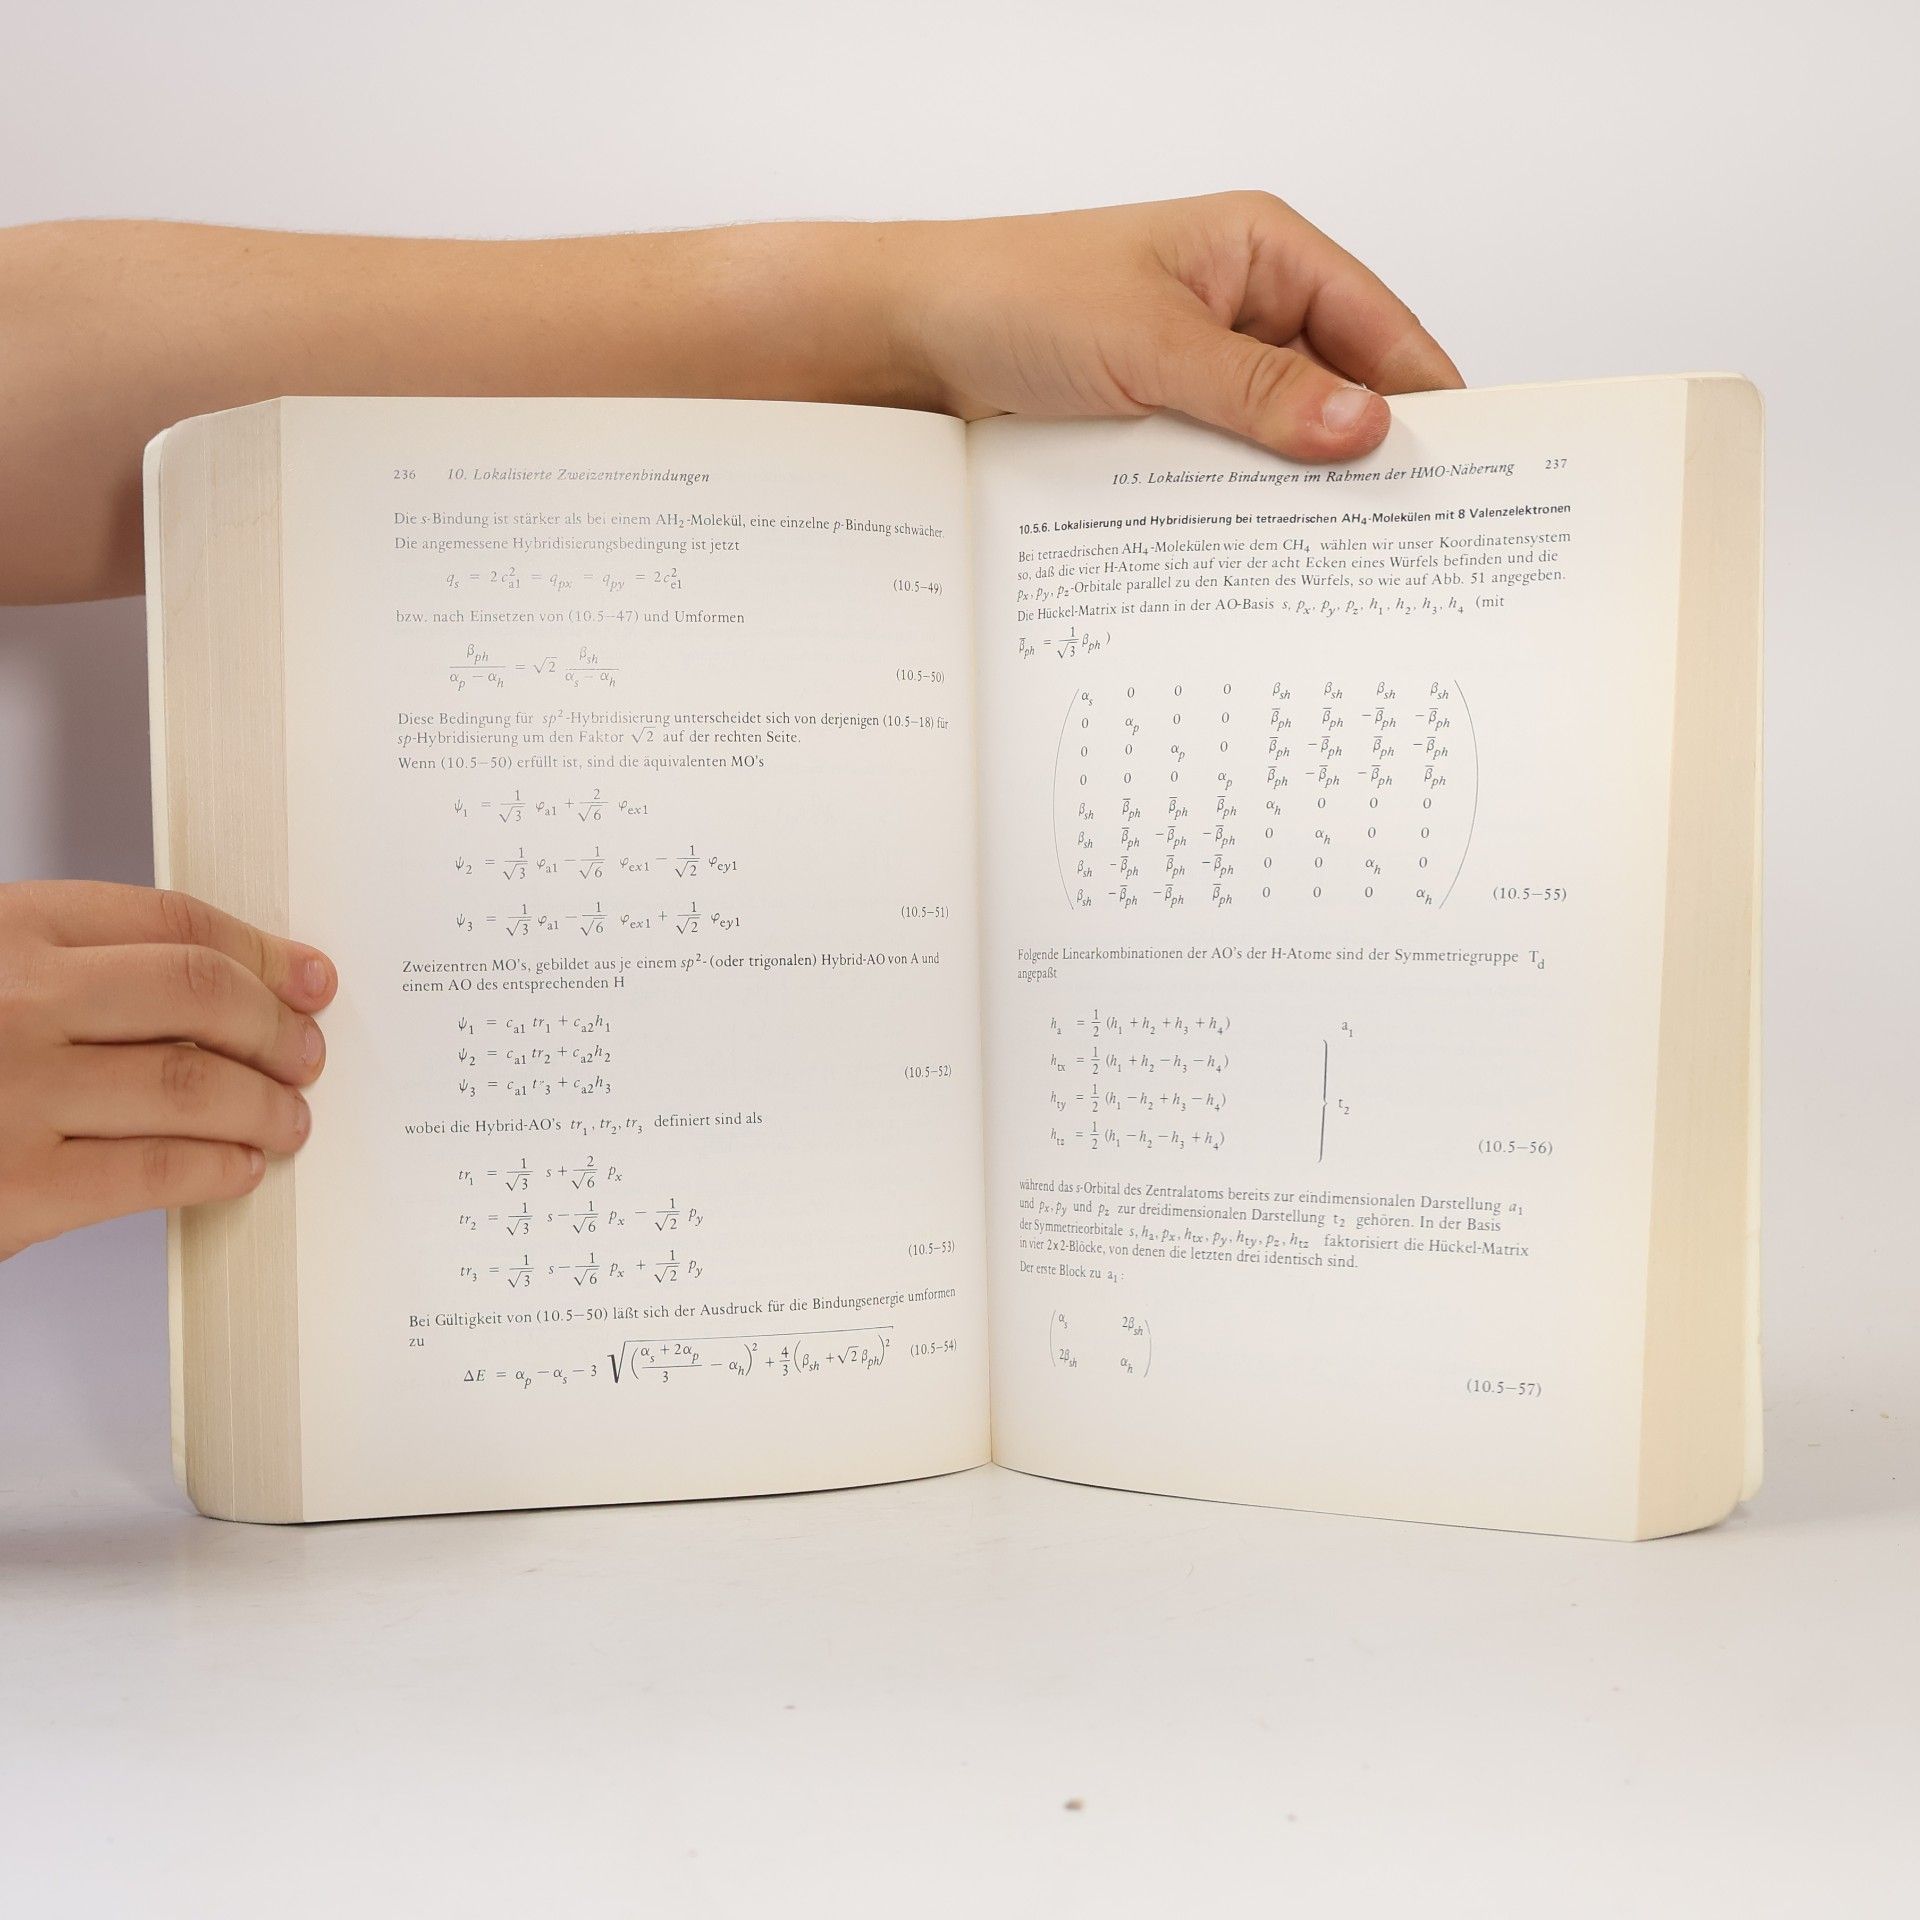 236 10. Lokalisierte Zweizentrenbindungen
Die s-Bindung ist stärker als bei einem AH₂-Molekül, eine einzelne p-Bindung schwächer.
Die angemessene Hybridisierungsbedingung ist jetzt
q_s = 2 c²_a1 = q_px = q_py = 2 c²_e1 (10.5–49)
bzw. nach Einsetzen von (10.5–47) und Umformen
β_ph / (α_p − α_h) = √2 β_sh / (α_s − α_h) (10.5–50)
Diese Bedingung für sp²-Hybridisierung unterscheidet sich von derjenigen (10.5–18) für
sp-Hybridisierung um den Faktor √2 auf der rechten Seite.
Wenn (10.5–50) erfüllt ist, sind die äquivalenten MO's
ψ₁ = 1/√3 φ_a1 + 2/√6 φ_ex1
ψ₂ = 1/√3 φ_a1 − 1/√6 φ_ex1 − 1/√2 φ_ey1
ψ₃ = 1/√3 φ_a1 − 1/√6 φ_ex1 + 1/√2 φ_ey1 (10.5–51)
Zweizentren MO's, gebildet aus je einem sp²- (oder trigonalen) Hybrid-AO von A und
einem AO des entsprechenden H
ψ₁ = c_a1 tr₁ + c_a2 h₁
ψ₂ = c_a1 tr₂ + c_a2 h₂
ψ₃ = c_a1 tr₃ + c_a2 h₃ (10.5–52)
wobei die Hybrid-AO's tr₁, tr₂, tr₃ definiert sind als
tr₁ = 1/√3 s + 2/√6 p_x
tr₂ = 1/√3 s − 1/√6 p_x − 1/√2 p_y
tr₃ = 1/√3 s − 1/√6 p_x + 1/√2 p_y (10.5–53)
Bei Gültigkeit von (10.5–50) läßt sich der Ausdruck für die Bindungsenergie umformen
zu
ΔE = α_p − α_s − 3 √( ((α_s + 2α_p)/3 − α_h)² + 4/3 (β_sh + √2 β_ph)² ) (10.5–54)
10.5. Lokalisierte Bindungen im Rahmen der HMO-Näherung 237
10.5.6. Lokalisierung und Hybridisierung bei tetraedrischen AH₄-Molekülen mit 8 Valenzelektronen
Bei tetraedrischen AH₄-Molekülen wie dem CH₄ wählen wir unser Koordinatensystem
so, daß die vier H-Atome sich auf vier der acht Ecken eines Würfels befinden und die
p_x, p_y, p_z-Orbitale parallel zu den Kanten des Würfels, so wie auf Abb. 51 angegeben.
Die Hückel-Matrix ist dann in der AO-Basis s, p_x, p_y, p_z, h₁, h₂, h₃, h₄ (mit
β̄_ph = 1/√3 β_ph )
α_s 0 0 0 β_sh β_sh β_sh β_sh
0 α_p 0 0 β̄_ph β̄_ph −β̄_ph −β̄_ph
0 0 α_p 0 β̄_ph −β̄_ph β̄_ph −β̄_ph
0 0 0 α_p β̄_ph −β̄_ph −β̄_ph β̄_ph
β_sh β̄_ph β̄_ph β̄_ph α_h 0 0 0
β_sh β̄_ph −β̄_ph −β̄_ph 0 α_h 0 0
β_sh −β̄_ph β̄_ph −β̄_ph 0 0 α_h 0
β_sh −β̄_ph −β̄_ph β̄_ph 0 0 0 α_h (10.5–55)
Folgende Linearkombinationen der AO's der H-Atome sind der Symmetriegruppe T_d
angepaßt
h_a = 1/2 (h₁ + h₂ + h₃ + h₄) a₁
h_tx = 1/2 (h₁ + h₂ − h₃ − h₄)
h_ty = 1/2 (h₁ − h₂ + h₃ − h₄) t₂
h_tz = 1/2 (h₁ − h₂ − h₃ + h₄) (10.5–56)
während das s-Orbital des Zentralatoms bereits zur eindimensionalen Darstellung a₁
und p_x, p_y und p_z zur dreidimensionalen Darstellung t₂ gehören. In der Basis
der Symmetrieorbitale s, h_a, p_x, h_tx, p_y, h_ty, p_z, h_tz faktorisiert die Hückel-Matrix
in vier 2x2-Blöcke, von denen die letzten drei identisch sind.
Der erste Block zu a₁:
α_s 2β_sh
2β_sh α_h
(10.5–57)